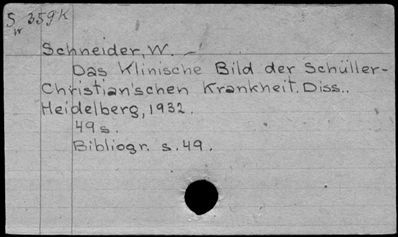 S 359K
W
Schneider, W. -
Das Klinische Bild der Schüller-
Christian'schen Krankheit. Diss..
Heidelberg, 1932.
49s.
Bibliogr. s.49.